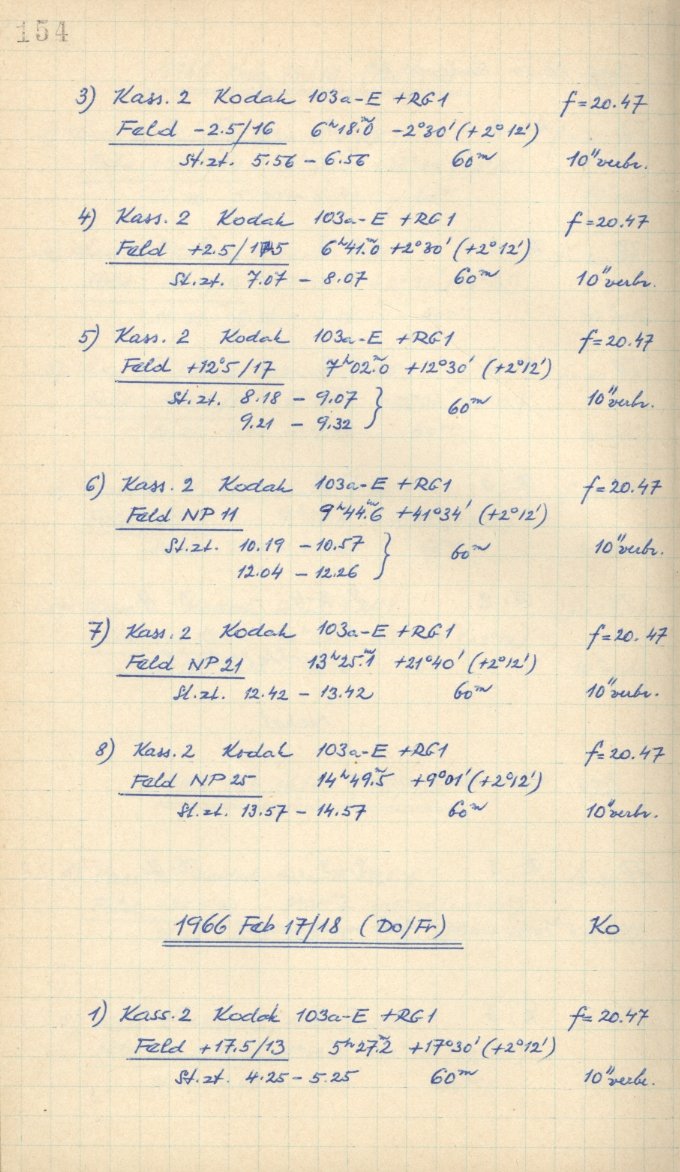 154
3) Kass. 2 Kodak 103a-E +RG1 f=20.47
Feld -2.5/16 6ʰ18ᵐ.0 -2°30' (+2°12')
St.zt. 5.56 – 6.56 60ᵐ 10" verbr.
4) Kass. 2 Kodak 103a-E +RG1 f=20.47
Feld +2.5/175 6ʰ41ᵐ.0 +2°30' (+2°12')
St.zt. 7.07 – 8.07 60ᵐ 10" verbr.
5) Kass. 2 Kodak 103a-E +RG1 f=20.47
Feld +12°5/17 7ʰ02ᵐ.0 +12°30' (+2°12')
St.zt. 8.18 – 9.07 } 60ᵐ 10" verbr.
9.21 – 9.32
6) Kass. 2 Kodak 103a-E +RG1 f=20.47
Feld NP 11 9ʰ44ᵐ.6 +41°34' (+2°12')
St.zt. 10.19 – 10.57 } 60ᵐ 10" verbr.
12.04 – 12.26
7) Kass. 2 Kodak 103a-E +RG1 f=20.47
Feld NP 21 13ʰ25ᵐ.1 +21°40' (+2°12')
St.zt. 12.42 – 13.42 60ᵐ 10" verbr.
8) Kass. 2 Kodak 103a-E +RG1 f=20.47
Feld NP 25 14ʰ49ᵐ.5 +9°01' (+2°12')
St.zt. 13.57 – 14.57 60ᵐ 10" verbr.
1966 Feb 17/18 (Do/Fr) Ko
1) Kass. 2 Kodak 103a-E +RG1 f=20.47
Feld +17.5/13 5ʰ27ᵐ.2 +17°30' (+2°12')
St.zt. 4.25 – 5.25 60ᵐ 10" verbr.